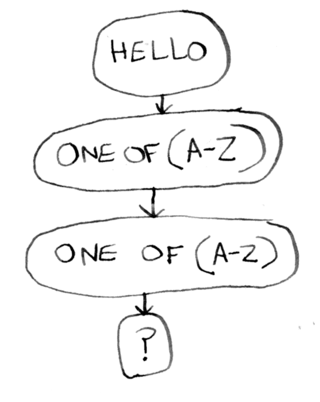 HELLO
ONE OF (A-Z)
ONE OF (A-Z)
?